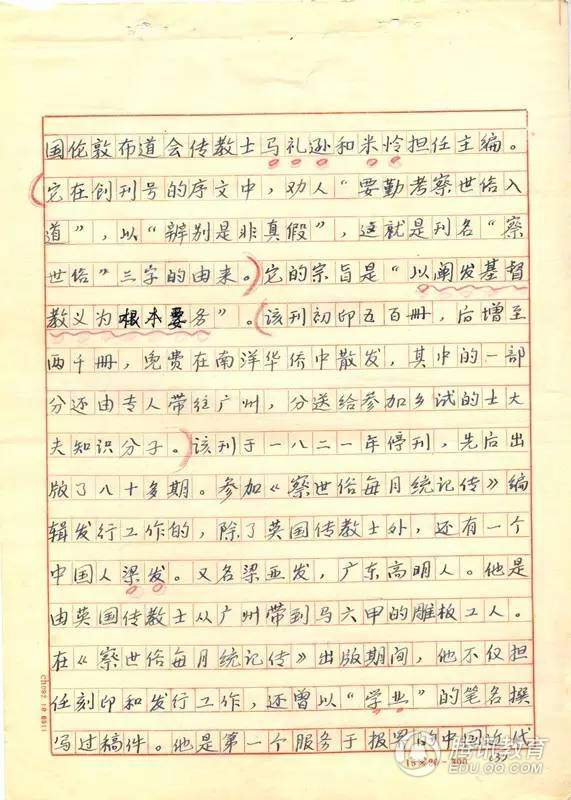 国伦敦布道会传教士马礼逊和米怜担任主编。
它在创刊号的序文中，劝人“要勤考察世俗入
道”，以“辨别是非真假”，这就是刊名“察
世俗”三字的由来。它的宗旨是“以阐发基督
教义为根本要务”。该刊初印五百册，后增至
两千册，免费在南洋华侨中散发，其中的一部
分还由专人带往广州，分送给参加乡试的士大
夫知识分子。该刊于一八二一年停刊，先后出
版了八十多期。参加《察世俗每月统记传》编
辑发行工作的，除了英国传教士外，还有一个
中国人梁发。又名梁亚发，广东高明人。他是
由英国传教士从广州带到马六甲的雕板工人。
在《察世俗每月统记传》出版期间，他不仅担
任刻印和发行工作，还曾以“学业”的笔名撰
写过稿件。他是第一个服务于报界的中国近代
腾讯教育
EDU.QQ.COM
15×20=300